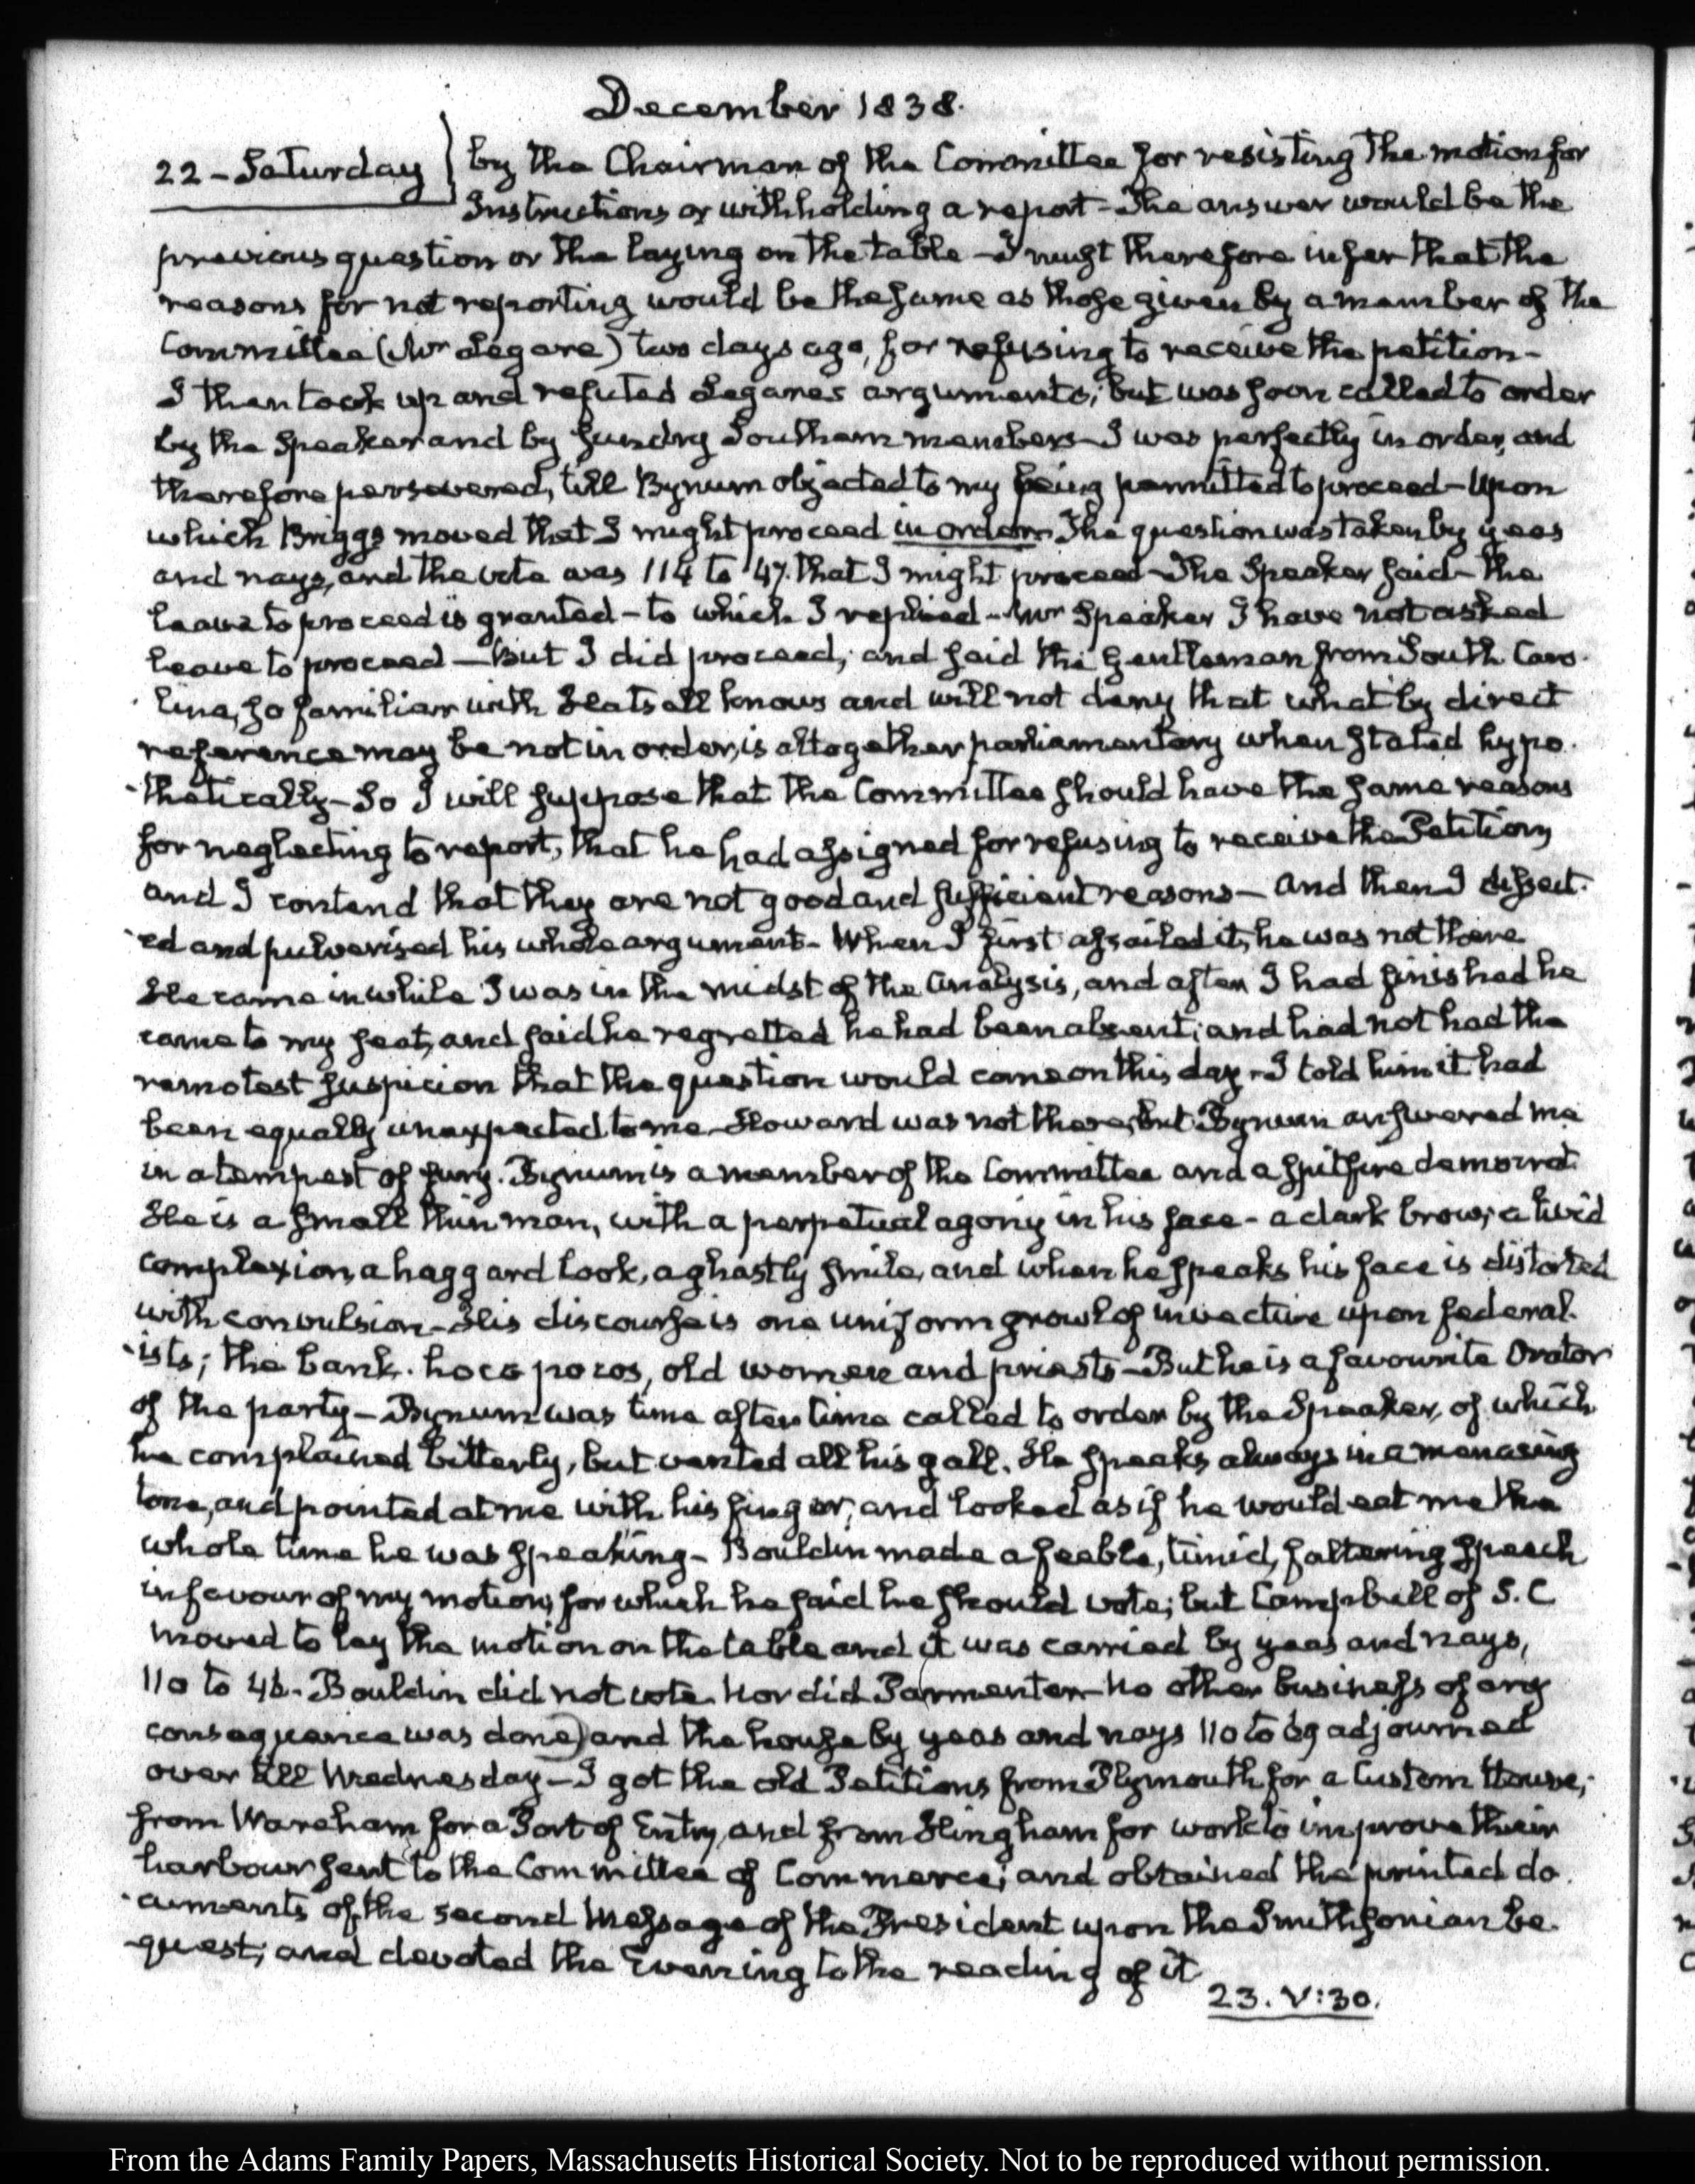 December 1838.
22 - Saturday } by the Chairman of the Committee for resisting the motion for
Instructions or withholding a report - The answer would be the
previous question or the laying on the table - I must therefore infer that the
reasons for not reporting would be the same as those given by a member of the
Committee (Mr Legare) two days ago, for refusing to receive the petition -
I then took up and refuted Legare's arguments; but was soon called to order
by the Speaker and by sundry Southern members - I was perfectly in order, and
therefore persevered, till Bynum objected to my being permitted to proceed - Upon
which Briggs moved that I might proceed in order. The question was taken by yeas
and nays, and the vote was 114 to 47. that I might proceed - The Speaker said - the
leave to proceed is granted - to which I replied - Mr Speaker I have not asked
leave to proceed — But I did proceed; and said the Gentleman from South Caro-
lina, so familiar with Heats all knows and will not deny that what by direct
reference may be not in order, is altogether parliamentary when stated hypo-
-thetically - So I will suppose that the Committee should have the same reasons
for neglecting to report, that he had assigned for refusing to receive the Petition,
and I contend that they are not good and sufficient reasons - and then I dissect-
-ed and pulverised his whole argument - When I first assailed it, he was not there
He came in while I was in the midst of the analysis, and after I had finished he
came to my seat, and said he regretted he had been absent; and had not had the
remotest suspicion that the question would come on this day - I told him it had
been equally unexpected to me - Howard was not there, but Bynum answered me
in a tempest of fury. Bynum is a member of the Committee and a spitfire democrat.
He is a small thin man, with a perpetual agony in his face - a dark brow, a livid
complexion, a haggard look, a ghastly smile, and when he speaks his face is distorted
with convulsion - His discourse is one uniform growl of invective upon federal-
-ists; the bank. hoco pocos, old women and priests - But he is a favourite Orator
of the party - Bynum was time after time called to order by the Speaker, of which
he complained bitterly, but vented all his gall. He speaks always in a menacing
tone, and pointed at me with his finger, and looked as if he would eat me the
whole time he was speaking - Bouldin made a feeble, timid, faltering speech
in favour of my motion, for which he said he should vote; but Campbell of S. C.
moved to lay the motion on the table and it was carried by yeas and nays,
110 to 48. Bouldin did not vote. Nor did Parmenter - No other business of any
consequence was done) and the house by yeas and nays 110 to 69 adjourned
over till Wednesday - I got the old Petitions from Plymouth for a Custom House;
from Wareham for a Port of Entry, and from Hingham for work to improve their
harbour sent to the Committee of Commerce; and obtained the printed do-
-cuments of the second Message of the President upon the Smithsonian be-
-quest; and devoted the Evening to the reading of it
23. V:30.
From the Adams Family Papers, Massachusetts Historical Society. Not to be reproduced without permission.